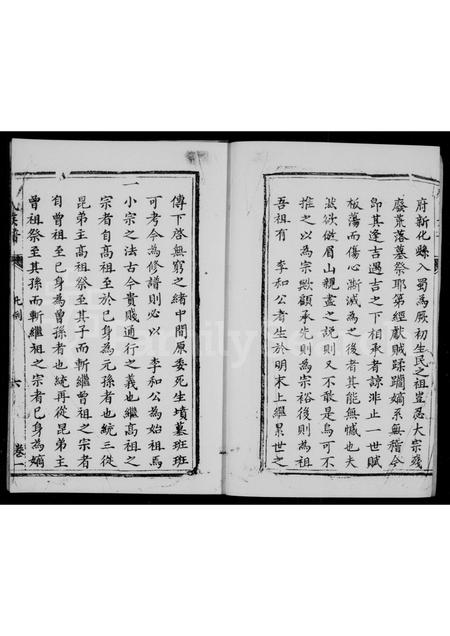 府新化縣入蜀爲厥初生民之祖豈忍大宗殘
廢荒落墓祭耶第經獻賊蹂躪嫡系無稽今
卽其逢吉遇吉之下相承者諒非止一世賦
板蕩而傷心漸滅爲之後者其能無憾也夫
欲倣眉山親盡之說則又不敢是烏可不
推之以爲宗歟顧承先則爲宗裕後則爲祖
吾祖有 李和公者生於明末上繼累世之
傳下啓無窮之緒中間原委死生墳墓班班
可考今爲修譜則必以 李和公爲始祖焉
一
小宗之法古今貴賤通行之義也繼高祖之
宗者自高祖至於己身爲元孫者也統三從
昆弟主高祖祭至其子而斬繼曾祖之宗者
自曾祖至己身爲曾孫者也統再從昆弟主
曾祖祭至其孫而斬繼祖之宗者己身爲嫡
氏族譜
凡例
六
卷一